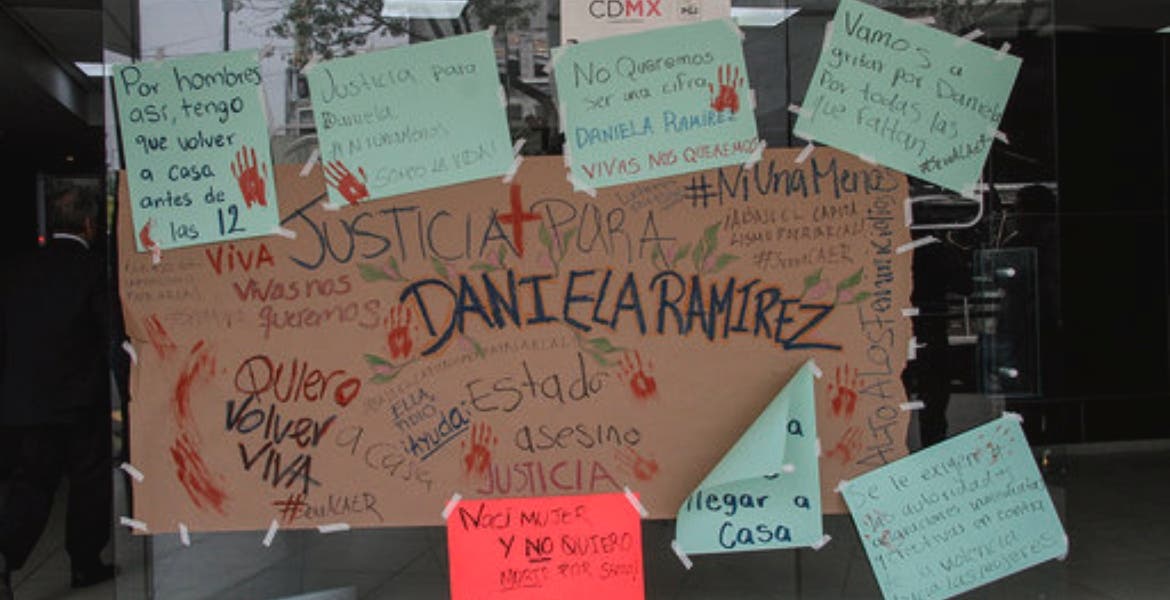 CDMX
Por hombres
así, tengo
que volver
a casa
antes de
las 12
Justicia para
Daniela
#NiUnaMenos
SOMOS LA VIDA!
No Queremos
ser una cifra
DANIELA RAMIREZ
VIVAS NOS QUEREMOS
Vamos a
gritar por Daniela
Por todas las
que faltan
#NiUnaMenos
¡ABAJO EL CAPITA
LISMO PATRIARCAL!
JUSTICIA PARA
DANIELA RAMIREZ
ViVA
Vivas nos
queremos
Quiero
Volver
VIVA
a casa
ELLA
PIDIO
¡Ayuda!
Estado
asesino
JUSTICIA
ALTO A LOS Feminicidios
Nací MUJER
Y NO QUIERO
MORIR POR SERLO!
a
llegar a
Casa
Se le exige a
las autoridades
en contra
violencia
las mujeres